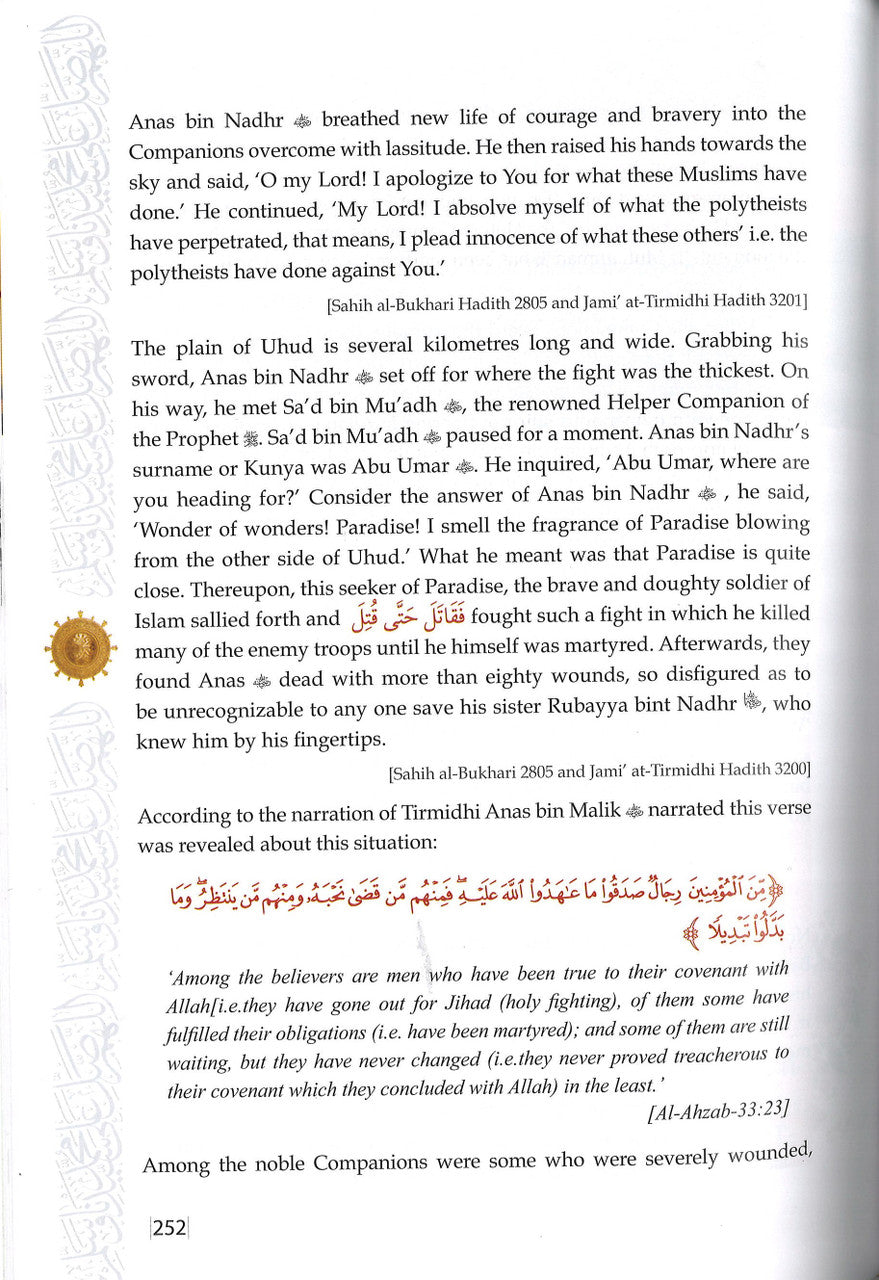 Anas bin Nadhr breathed new life of courage and bravery into the
Companions overcome with lassitude. He then raised his hands towards the
sky and said, ‘O my Lord! I apologize to You for what these Muslims have
done.’ He continued, ‘My Lord! I absolve myself of what the polytheists
have perpetrated, that means, I plead innocence of what these others’ i.e. the
polytheists have done against You.’
[Sahih al-Bukhari Hadith 2805 and Jami’ at-Tirmidhi Hadith 3201]
The plain of Uhud is several kilometres long and wide. Grabbing his
sword, Anas bin Nadhr set off for where the fight was the thickest. On
his way, he met Sa’d bin Mu’adh , the renowned Helper Companion of
the Prophet ﷺ. Sa’d bin Mu’adh paused for a moment. Anas bin Nadhr’s
surname or Kunya was Abu Umar . He inquired, ‘Abu Umar, where are
you heading for?’ Consider the answer of Anas bin Nadhr , he said,
‘Wonder of wonders! Paradise! I smell the fragrance of Paradise blowing
from the other side of Uhud.’ What he meant was that Paradise is quite
close. Thereupon, this seeker of Paradise, the brave and doughty soldier of
Islam sallied forth and فَقَاتَلَ حَتَّى قُتِلَ fought such a fight in which he killed
many of the enemy troops until he himself was martyred. Afterwards, they
found Anas dead with more than eighty wounds, so disfigured as to
be unrecognizable to any one save his sister Rubayya bint Nadhr , who
knew him by his fingertips.
[Sahih al-Bukhari 2805 and Jami’ at-Tirmidhi Hadith 3200]
According to the narration of Tirmidhi Anas bin Malik narrated this verse
was revealed about this situation:
﴿مِّنَ ٱلْمُؤْمِنِينَ رِجَالٌ صَدَقُوا۟ مَا عَٰهَدُوا۟ ٱللَّهَ عَلَيْهِ ۖ فَمِنْهُم مَّن قَضَىٰ نَحْبَهُۥ وَمِنْهُم مَّن يَنتَظِرُ ۖ وَمَا
بَدَّلُوا۟ تَبْدِيلًا ﴾
‘Among the believers are men who have been true to their covenant with
Allah[i.e.they have gone out for Jihad (holy fighting), of them some have
fulfilled their obligations (i.e. have been martyred); and some of them are still
waiting, but they have never changed (i.e.they never proved treacherous to
their covenant which they concluded with Allah) in the least.’
[Al-Ahzab-33:23]
Among the noble Companions were some who were severely wounded,
|252|